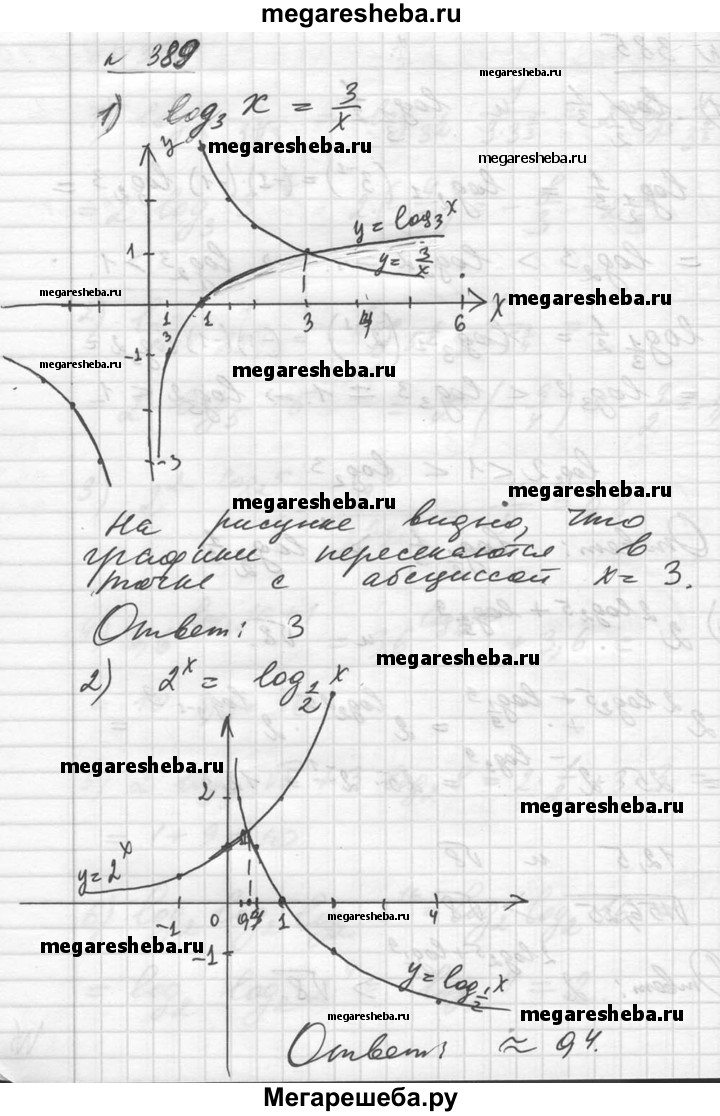 megaresheba.ru
№ 389
megaresheba.ru
1) log₃ x = 3/x
y
megaresheba.ru
megaresheba.ru
y = log₃ x
1
y = 3/x
megaresheba.ru
1/3 1 3 4 6 x
megaresheba.ru
-1
megaresheba.ru
megaresheba.ru
-3
megaresheba.ru
megaresheba.ru
На рисунке видно, что
графики пересекаются в
точке с абсциссой x = 3.
Ответ: 3
megaresheba.ru
2) 2ˣ = log_{1/2} x
megaresheba.ru
2
megaresheba.ru
y = 2ˣ
-1 0 1 4
megaresheba.ru
megaresheba.ru
-1
y = log_{1/2} x
megaresheba.ru
megaresheba.ru
Ответ: ≈ 0,4.
Мегарешеба.ру